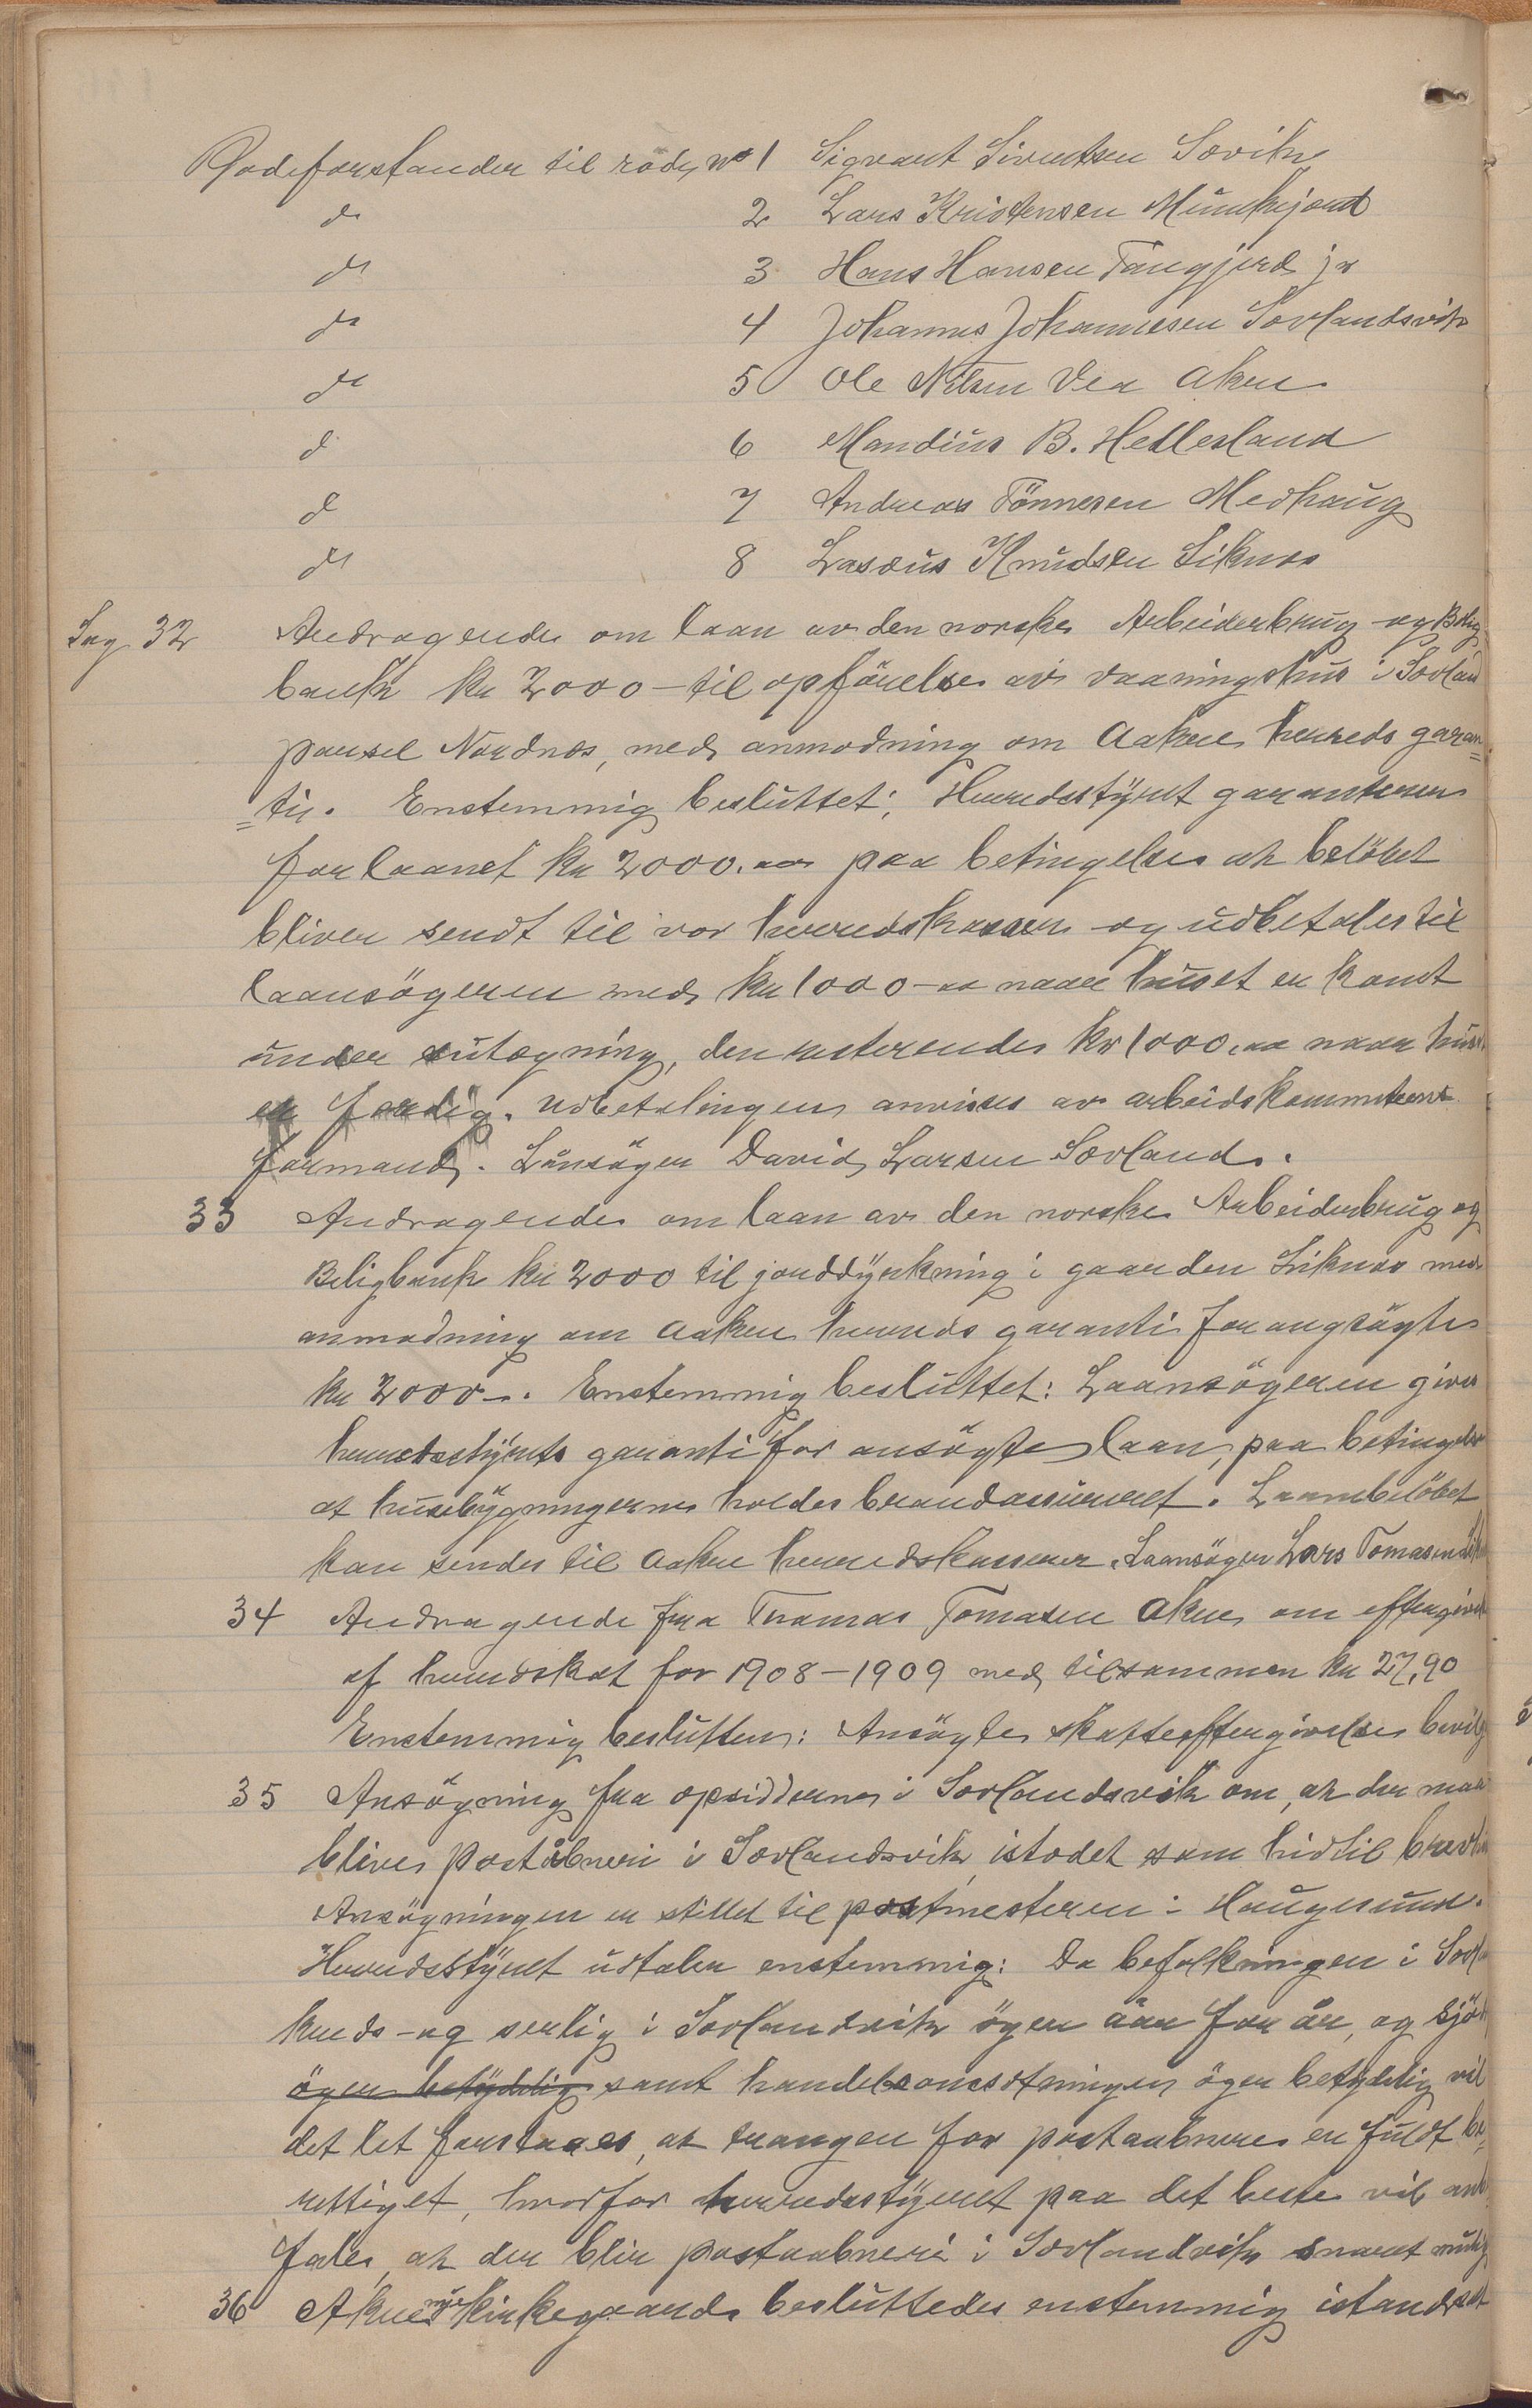 Rodeforstander til rode No 1 Sigvart Sivertsen Sævik
do 2 Lars Kristensen Munkejord
do 3 Hans Hansen Tangjerd jr
do 4 Johannes Johannesen Sævlandsvik
do 5 Ole Nilsen Vea Åkre
do 6 Mandius B. Hetlesland
do 7 Andreas Tönnesen Medhaug
do 8 Knudsen Liknes
Sag 32 Andragende om laan av den norske Arbeiderbrug og Bolig
bank kr 2000 - til opförelse av vaaningshus i Sævland
parsel Nordnes, med anmodning om Aakre herreds garan=
=ti. Enstemmig besluttet: Herredstyret garanterer
for laanet kr 2000.00 paa betingelse at belöbet
bliver sendt til vor herredskasser og udbetales til
laansögeren med kr 1000-00 naar huset er komt
under utægning, den resterende kr 1000.00 naar huse
er færdig. Udbetalingen anvises av arbeidskommiteens
formand. Lånsöger David Larsen Sævland.
33 Andragende om laan av den norske Arbeiderbrug og
Boligbank kr 2000 til jorddyrkning i gaarden Liknes med
anmodning om Aakre herreds garanti for angsögte
kr 2000-. Enstemmig besluttet: Laansögeren gives
herredsstyrets garanti for ansögte laan, paa betingelse
at husebygningerne holdes brandassureret. Laanebelöbet
kan sendes til Aakre herredskasserer. Laansöger Lars Tomasen
34 Andragende fra Tomas Tomasen Åkre om eftergivel
af herredskat for 1908-1909 med tilsammen kr 27,90
Enstemmig besluttet: Ansögte skatteeftergivelse bevilg
35 Ansögning fra opsidderne i Sævlandsvik om, at der maa
blive poståbneri i Sævlandsvik, istedet som hidtil brevh
Ansögningen er stillet til postmesteren i Haugesund.
Herredsstyret udtaler enstemmig: Da befolkningen i Sævl
kreds - og serlig i Sævlandsvik öger år for år, og sjö
öger betydelig samt handelsomsætningen öger betydelig vil
det let forstaaes, at trangen for postaabneri er fuldt be=
rettiget, hvorfor herredsstyret paa det beste vil anb
fale, at der blir postaabneri i Sævlandvik snarest mulig
36 Åkre nye kirkegaard besluttedes enstemmig istandsat